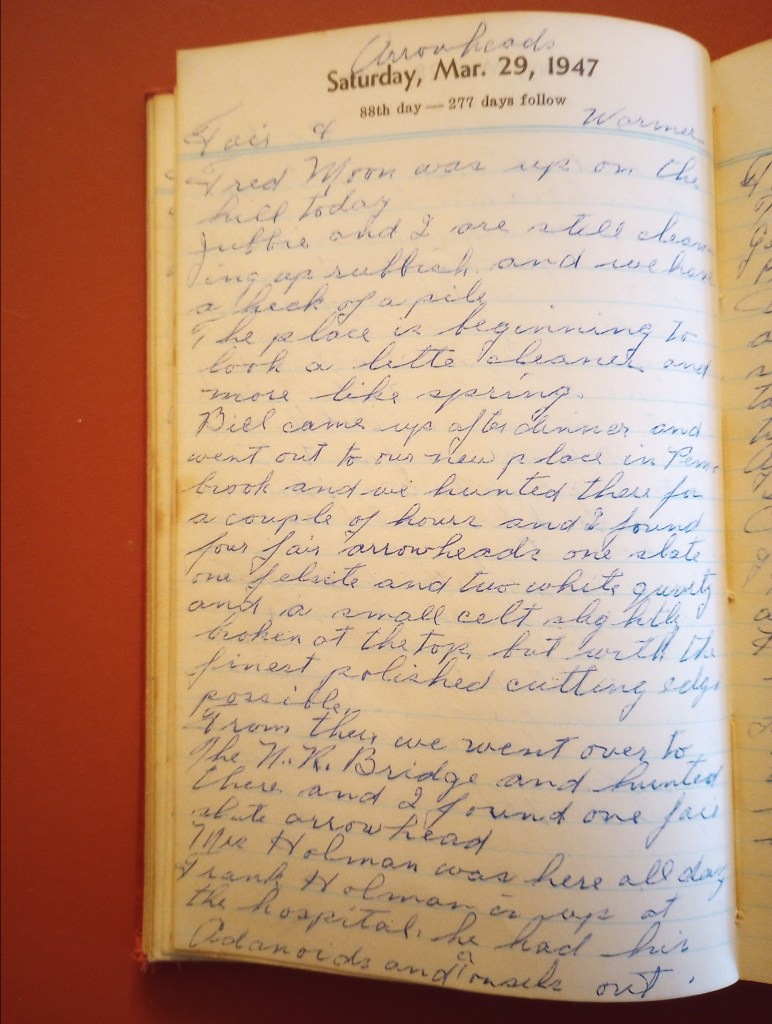 Arrowheads
Saturday, Mar. 29, 1947
88th day — 277 days follow
Fair & Warmer
Fred Moon was up on the
hill today
Jubbie and I are still clean-
ing up rubbish and we have
a heck of a pile
The place is beginning to
look a litte cleaner and
more like spring.
Bill came up after dinner and
went out to our new place in Pem-
brook and we hunted there for
a couple of hours and I found
four fair arrowheads one slate
one felsite and two white quartz
and a small celt slightly
broken at the top, but with the
finest polished cutting edge
possible.
From there we went over to
The N. R. Bridge and hunted
there and I found one fair
slate arrowhead
Mrs Holman was here all day
Frank Holman is up at
the hospital, he had his
Adanoids and Tonsels out.